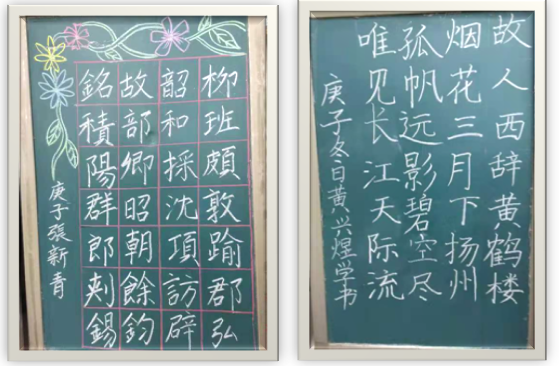 柳班頗敦踰郡弘
韶和採沈項訪辟
故部卿昭朝餘鈞
銘積陽群郎刾錫
庚子張新青
故人西辞黄鹤楼
烟花三月下扬州
孤帆远影碧空尽
唯见长江天际流
庚子冬日黄兴煋学书